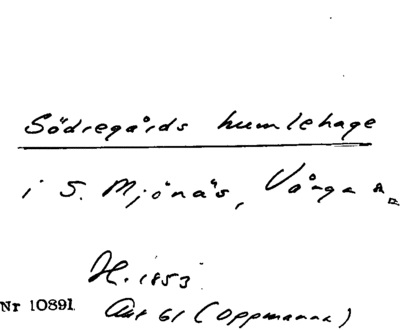 Södregårds humlehage
i S. Mjönäs, Vånga s.
H. 1853
Nr 10891. Akt 61 (Oppmanna)